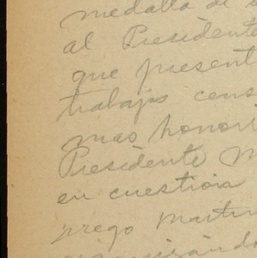 medalla de
al Presidente
que present
trabajo cens
mas honori
Presidente M
en cuestion
prego Martin